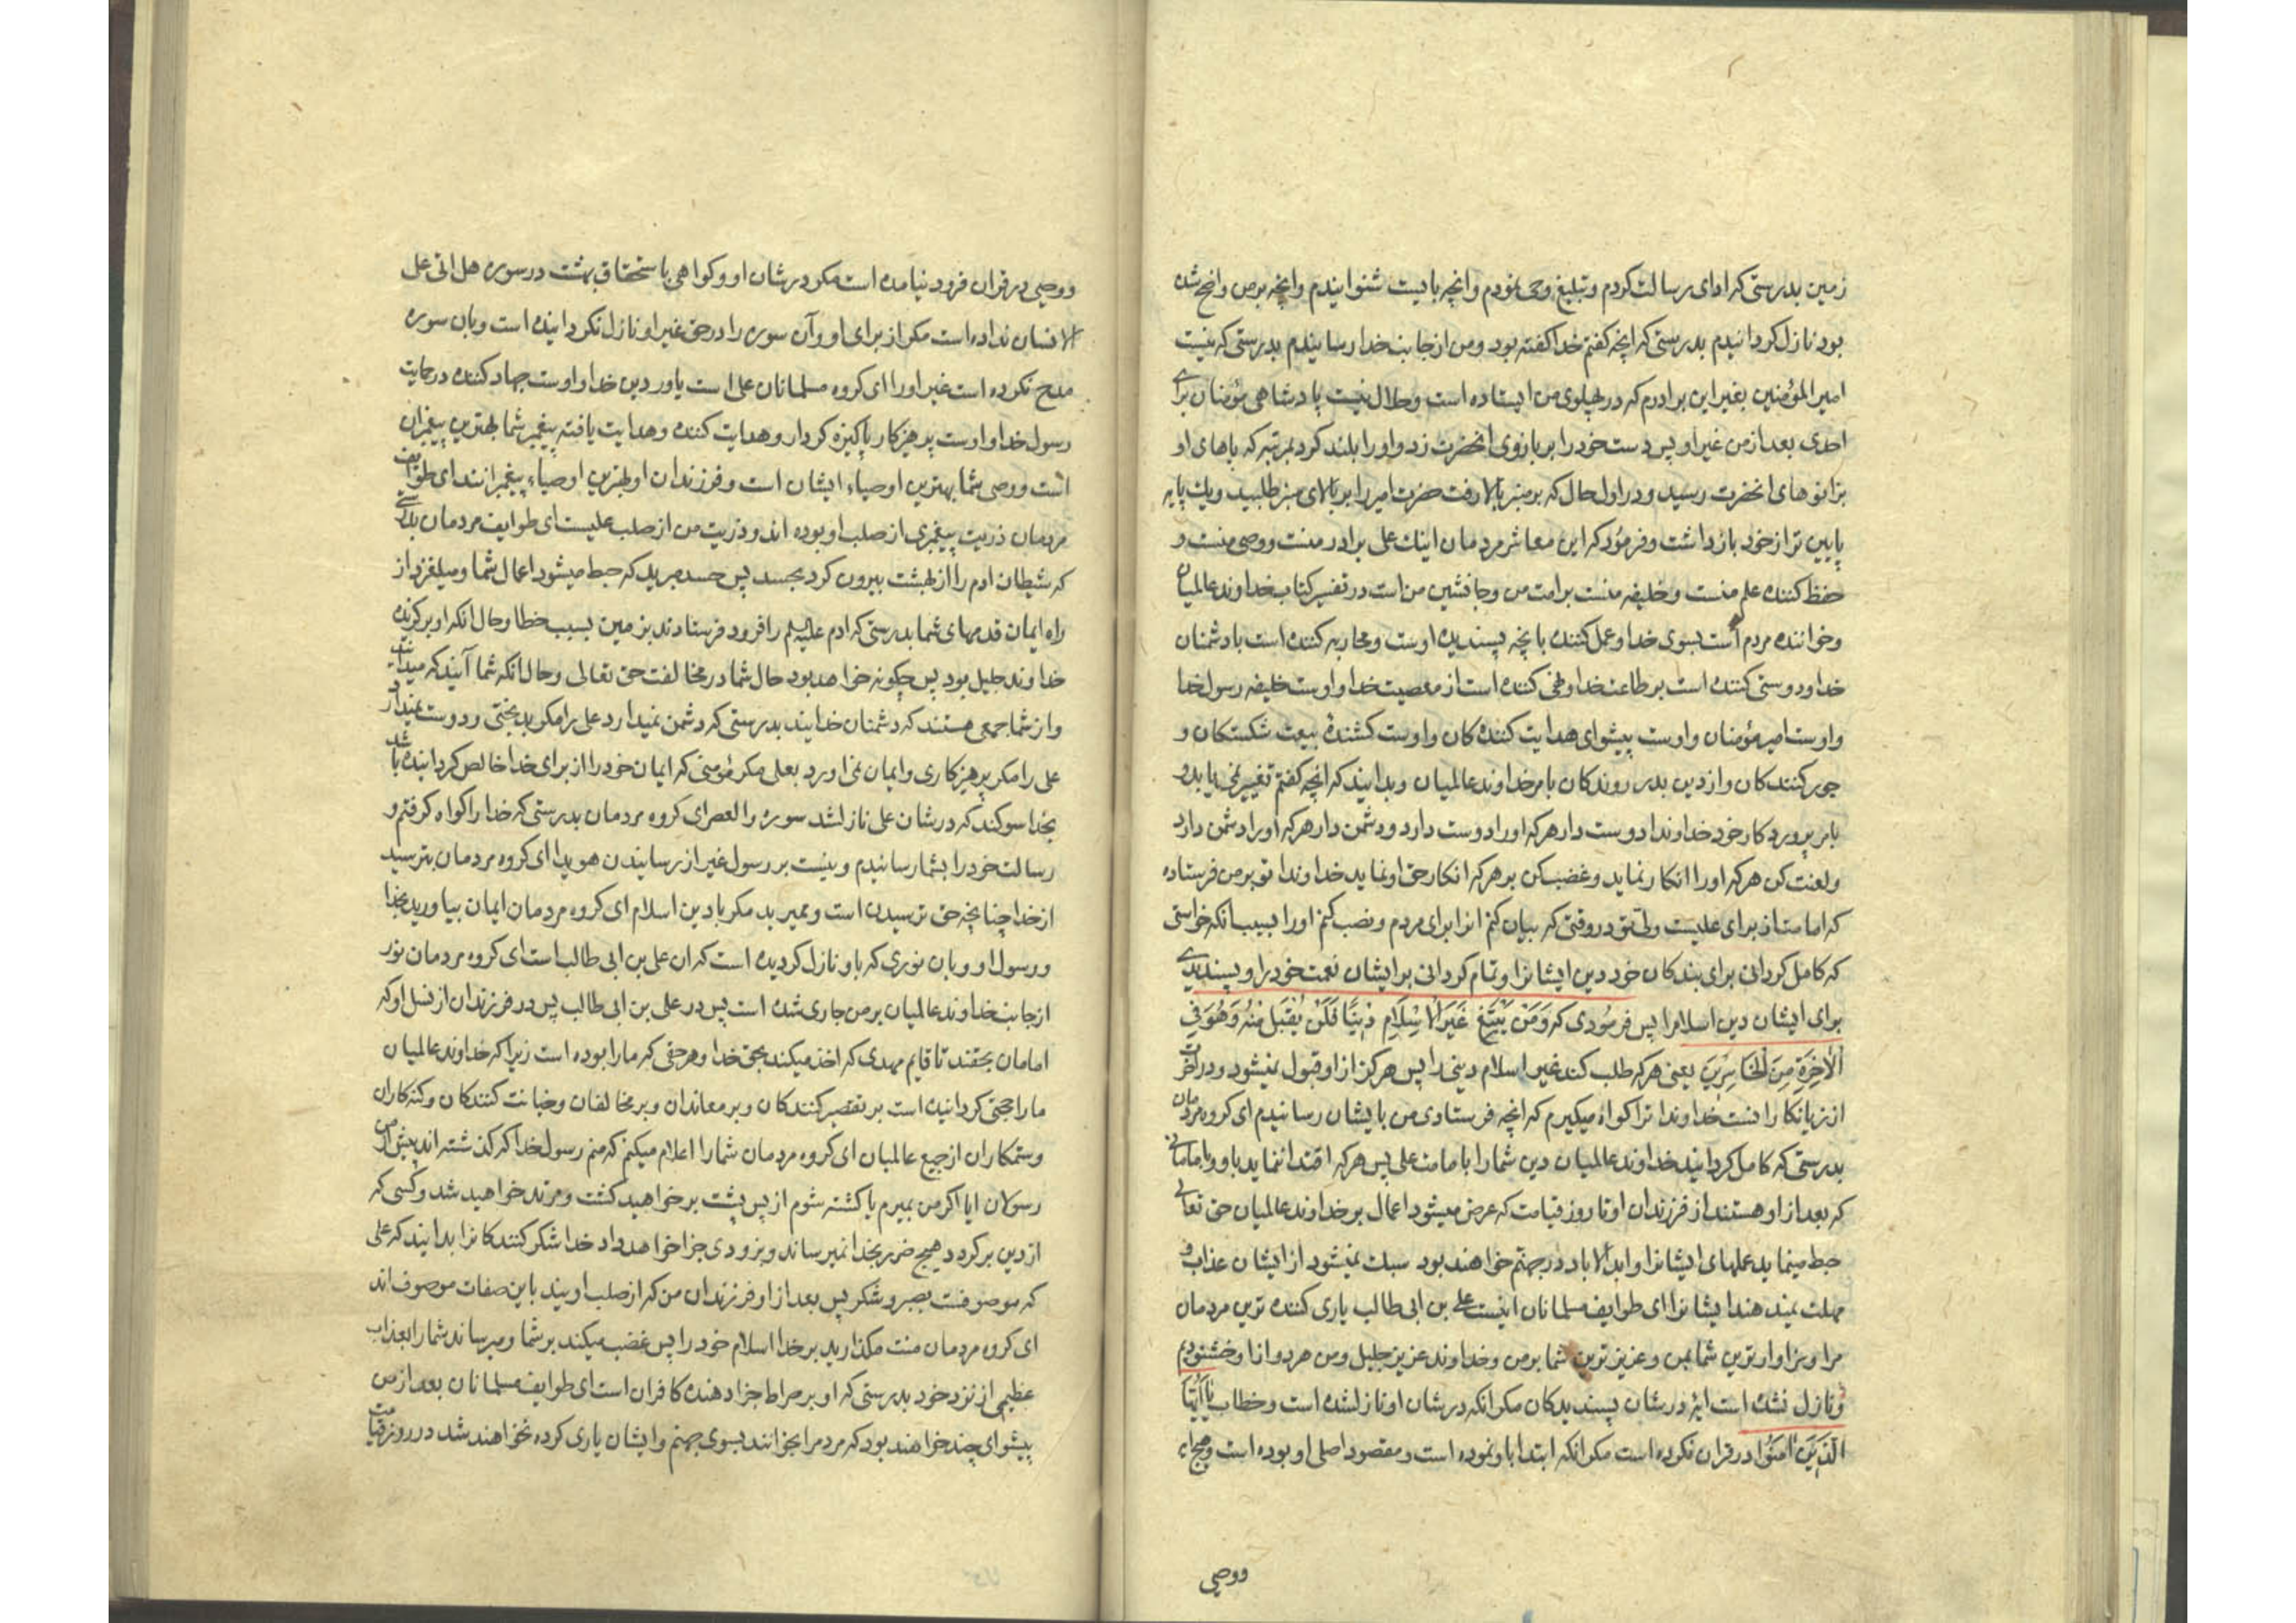 زمین بدرستی که ادای رسالت کردم و تبلیغ وحی نمودم و انچه بایست شنوانیدم و انچه بر من واضح شده
بود نازل کردانیدم بدرستی که انچه کفتم خدا کفته بود و من از جانب خدا رسانیدم بدرستی که نیست
امیر المؤمنین بغیر این برادرم که در پهلوی من ایستاده است و حلال نیست پادشاهی مؤمنان برای
احدی بعد از من غیر او پس دست خود را بر بازوی انحضرت زد و او را بلند کرد بمرتبه که پاهای او
بزانوهای انحضرت رسید و در اول حال که بر منبر بالا رفت حضرت امیر را بر بالای منبر طلبید و یک پایه
پایین تر از خود بازداشت و فرمود که این معاشر مردمان اینک علی برادر منست و وصی منست و
حفظ کننده علم منست و خلیفه منست بر امت من و جانشین من است در تفسیر کتاب خداوند عالمیان
و خواننده مردم است بسوی خدا و عمل کننده بانچه پسندیده اوست و محاربه کننده است با دشمنان
خدا و دوستی کننده است بر طاعت خدا و نهی کننده است از معصیت خدا و اوست خلیفه رسول خدا
و اوست امیر مؤمنان و اوست پیشوای هدایت کننده کان و اوست کشنده بیعت شکستکان و
جور کنندکان و از دین بدر روندکان بامر خداوند عالمیان و بدانید که انچه کفتم تغییر نمی یابد و
بامر پروردکار خود خداوندا دوست دار هر که او را دوست دارد و دشمن دار هر که او را دشمن دارد
و لعنت کن هر که او را انکار نماید و غضب کن بر هر که انکار حق او نماید خداوندا تو بر من فرستاده
که امامت از برای علیست ولی تو در وقتی که بیان کنم انرا برای مردم و نصب کنم او را بسبب انکه خواستی
که کامل کردانی برای بندکان خود دین ایشانرا و تمام کردانی بر ایشان نعمت خود را و پسندیدی
برای ایشان دین اسلام را پس فرمودی که وَمَنْ یَبْتَغِ غَیْرَ الْاِسْلَامِ دِینًا فَلَنْ یُقْبَلَ مِنْهُ وَهُوَ فِی
الْآخِرَةِ مِنَ الْخَاسِرِینَ یعنی هر که طلب کند غیر اسلام دینی را پس هرکز از او قبول نمیشود و در آخرت
از زیانکارانست خداوندا ترا کواه میکیرم که انچه فرستادی من بایشان رسانیدم ای کروه مردمان
بدرستی که کامل کردانید خداوند عالمیان دین شما را بامامت علی پس هر که اقتدا ننماید باو و بامامانی
که بعد از او هستند از فرزندان او تا روز قیامت که عرض میشود اعمال بر خداوند عالمیان حق تعالی
حبط مینماید عملهای ایشانرا و ابد الاباد در جهنم خواهند بود سبک نمیشود از ایشان عذاب و
مهلت نمیدهند ایشانرا ای طوایف مسلمانان اینست علی بن ابی طالب یاری کننده ترین مردمان
مرا و سزاوارترین شما بمن و عزیزترین شما بر من و خداوند عزیز جلیل و من هر دو از او خشنودیم
و نازل نشده است ایهٔ در شان پسندیدکان مکر انکه در شان او نازلشده است و خطاب یَا اَیُّهَا
الَّذِینَ آمَنُوا در قران نکرده است مکر انکه ابتدا باو نموده است و مقصود اصلی او بوده است و هیچ
ووصی
ووصی در قران فرود نیامده است مکر در شان او و کواهی باستحقاق بهشت در سوره هل اتی علی
الانسان نداده است مکر از برای او و آن سوره را در حق غیر او نازل نکردانیده است و بان سوره
مدح نکرده است غیر او را ای کروه مسلمانان علی است یاور دین خدا و اوست جهاد کننده در حمایت
رسول خدا و اوست پرهیزکار پاکیزه کردار و هدایت کننده و هدایت یافته پیغمبر شما بهترین پیغمبران
است و وصی شما بهترین اوصیاء ایشان است و فرزندان او بهترین اوصیاء پیغمبرانند ای طوایف
مردمان ذریت پیغمبری از صلب او بوده اند و ذریت من از صلب علیست ای طوایف مردمان بدرستی
که شیطان ادم را از بهشت بیرون کرد بحسد پس حسد مبرید که حبط میشود اعمال شما و میلغزد از
راه ایمان قدمهای شما بدرستی که ادم علیه السلم را فرود فرستادند بزمین بسبب خطا و حال انکه او برکزیده
خداوند جلیل بود پس چکونه خواهد بود حال شما در مخالفت حق تعالی و حال انکه شما آنید که میدانید
و از شما جمعی هستند که دشمنان خدایند بدرستی که دشمن نمیدارد علی را مکر بدبختی و دوست نمیدارد
علی را مکر پرهیزکاری و ایمان نمی اورد بعلی مکر مؤمنی که ایمان خود را از برای خدا خالص کردانیده باشد
بخدا سوکند که در شان علی نازلشد سوره والعصر ای کروه مردمان بدرستی که خدا را کواه کرفتم و
رسالت خود را بشما رسانیدم و نیست بر رسول غیر از رسانیدن هویدا ای کروه مردمان بترسید
از خدا چنانچه حق ترسیدن است و ممیرید مکر با دین اسلام ای کروه مردمان ایمان بیاورید بخدا
و رسول او و بان نوری که باو نازل کردیده است که ان علی بن ابی طالب است ای کروه مردمان نور
از جانب خداوند عالمیان بر من جاری شده است پس در علی بن ابی طالب پس در فرزندان از نسل او که
امامان بحقند تا قایم مهدی که اخذ میکند بحق خدا و هر حقی که ما را بوده است زیرا که خداوند عالمیان
ما را حجتی کردانیده است بر تقصیر کنندکان و بر معاندان و بر مخالفان و خیانت کنندکان و کنه کاران
و ستمکاران از جمیع عالمیان ای کروه مردمان شما را اعلام میکنم که منم رسول خدا که کذشته اند پیش از من
رسولان ایا اکر من بمیرم یا کشته شوم از پس پشت بر خواهید کشت و مرتد خواهید شد و کسی که
از دین بر کردد هیچ ضرر بخدا نمیرساند و بزودی جزا خواهد داد خدا شکر کنندکانرا بدانید که علی
که موصوفست بصبر و شکر پس بعد از او فرزندان من که از صلب اویند باین صفات موصوف اند
ای کروه مردمان منت مکذارید بر خدا اسلام خود را پس غضب میکند بر شما و میرساند شما را بعذاب
عظیمی از نزد خود بدرستی که او بر صراط جزا دهنده کافران است ای طوایف مسلمانان بعد از من
پیشوای چند خواهند بود که مردم را بخوانند بسوی جهنم و ایشان یاری کرده نخواهند شد در روز قیامت